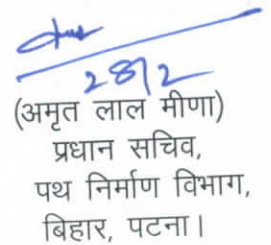 28/2
(अमृत लाल मीणा)
प्रधान सचिव,
पथ निर्माण विभाग,
बिहार, पटना।